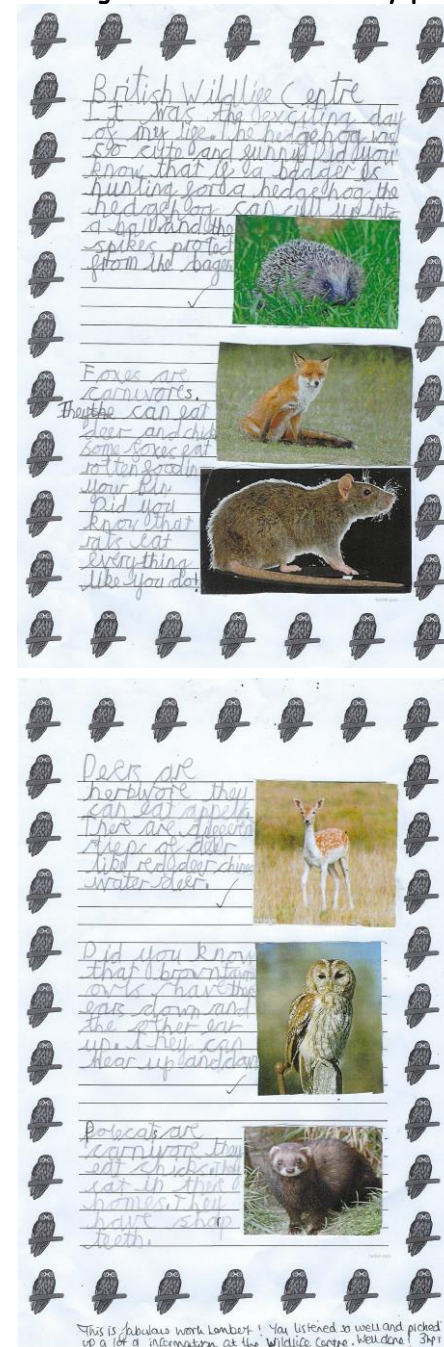 British Wildlife Centre
It was the exciting day
of my life. The hedgehog was
so cute and funny. Did you
know that if a badger is
hunting for a hedgehog the
hedgehog can curl up into
a ball and the
spikes protect
from the bager.
Foxes are
carnivores.
They can eat
deer and chick
some foxes eat
rotten food in
your bin
Did you
know that
rats eat
everything
like you do!
Deers are
herbivore they
can eat
There are
of deer
like red deer
water deer.
Did you know
that brown
owls have
ears down and
the other ear
up. They can
hear up and down
Polecats are
carnivore they
eat chicks. They
eat in
homes. They
have shap
teeth.
This is fabulous work Lambert! You listened so well and picked
up a lot of information at the Wildlife Centre. Well done! 3hpt